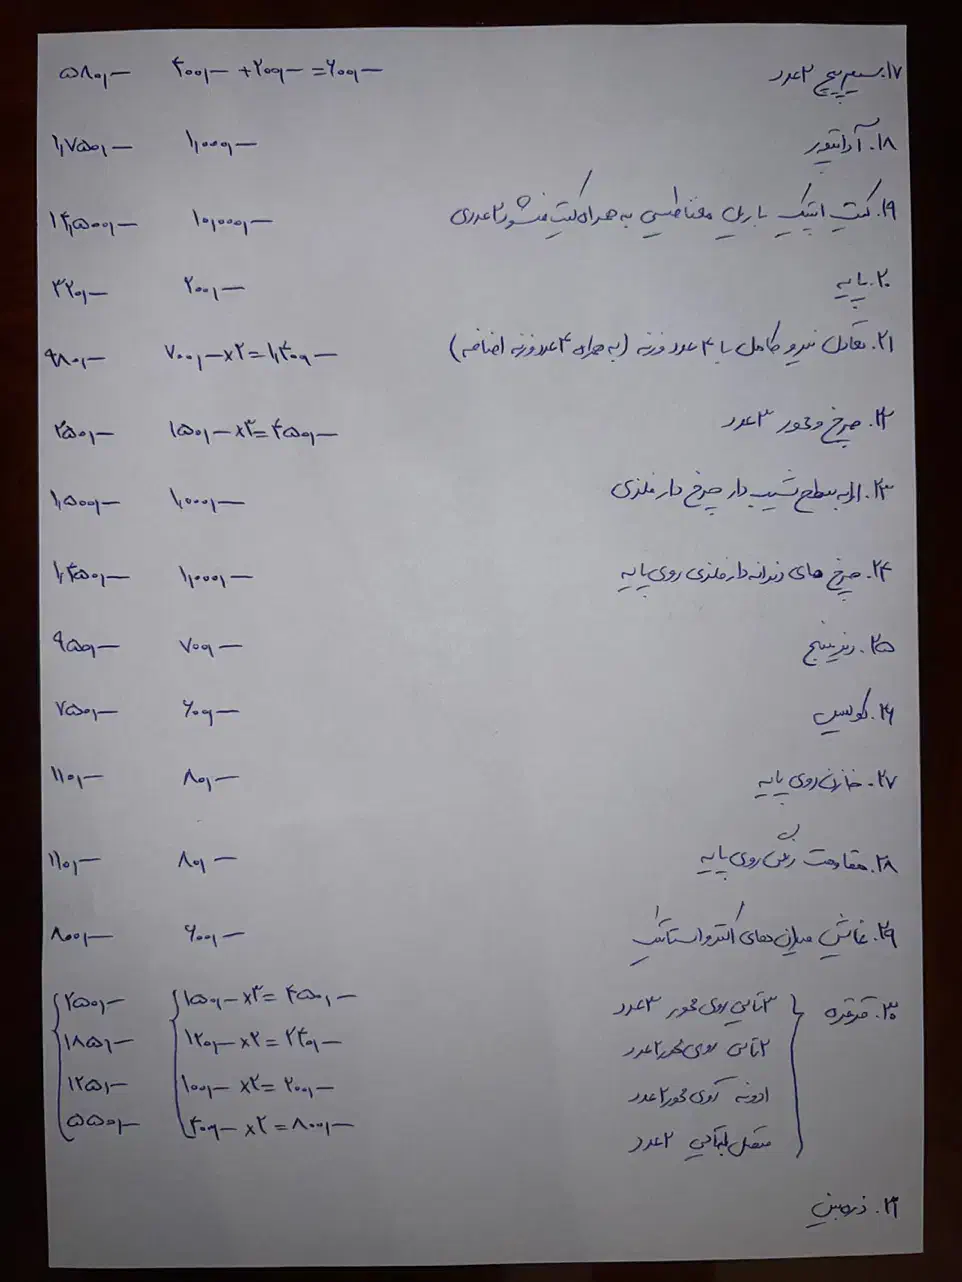 ۱۷. سیم پیچ ۲ عدد ۴۰۰,— + ۲۰۰,— = ۶۰۰,— ۵۸۰,—
۱۸. آدابتور ۱,۰۰۰,— ۱,۷۵۰,—
۱۹. کیت اپتیک با ریل مغناطیسی به همراه کیت منشور ۲ عددی ۱۰,۰۰۰,— ۱۴,۵۰۰,—
۲۰. پایه ۲۰۰,— ۳۲۰,—
۲۱. تعادل نیرو کامل با ۴ عدد وزنه (به همراه ۴ عدد وزنه اضافه) ۷۰۰,— ×۲ = ۱,۴۰۰,— ۹۸۰,—
۲۲. چرخ و محور ۳ عدد ۱۵۰,— ×۳ = ۴۵۰,— ۲۵۰,—
۲۳. سطح شیب دار چرخ دار فلزی ۱,۰۰۰,— ۱,۵۰۰,—
۲۴. چرخ های دندانه دار فلزی روی پایه ۱,۰۰۰,— ۱,۴۵۰,—
۲۵. ۷۰۰,— ۹۵۰,—
۲۶. کولیس ۶۰۰,— ۷۵۰,—
۲۷. خازن روی پایه ۸۰,— ۱۱۰,—
۲۸. مقاومت رنگی روی پایه ۸۰,— ۱۱۰,—
۲۹. نمایش میدان های الکترواستاتیک ۶۰۰,— ۸۰۰,—
۳۰. قرقره ۳ تایی روی محور ۳ عدد ۱۵۰,— ×۳ = ۴۵۰,— ۲۵۰,—
۲ تایی روی محور ۲ عدد ۱۲۰,— ×۲ = ۲۴۰,— ۱۸۵,—
روی محور ۲ عدد ۱۰۰,— ×۲ = ۲۰۰,— ۱۲۵,—
۲ عدد ۴۰۰,— ×۲ = ۸۰۰,— ۵۵۰,—
۳۱. ذره بین